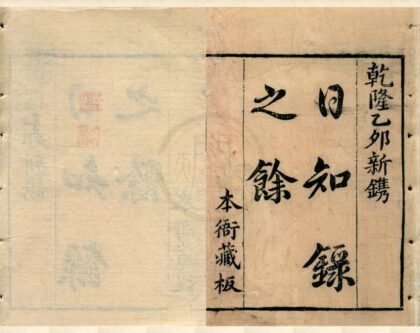 乾隆乙卯新鐫
日知錄
之餘
本衙藏板